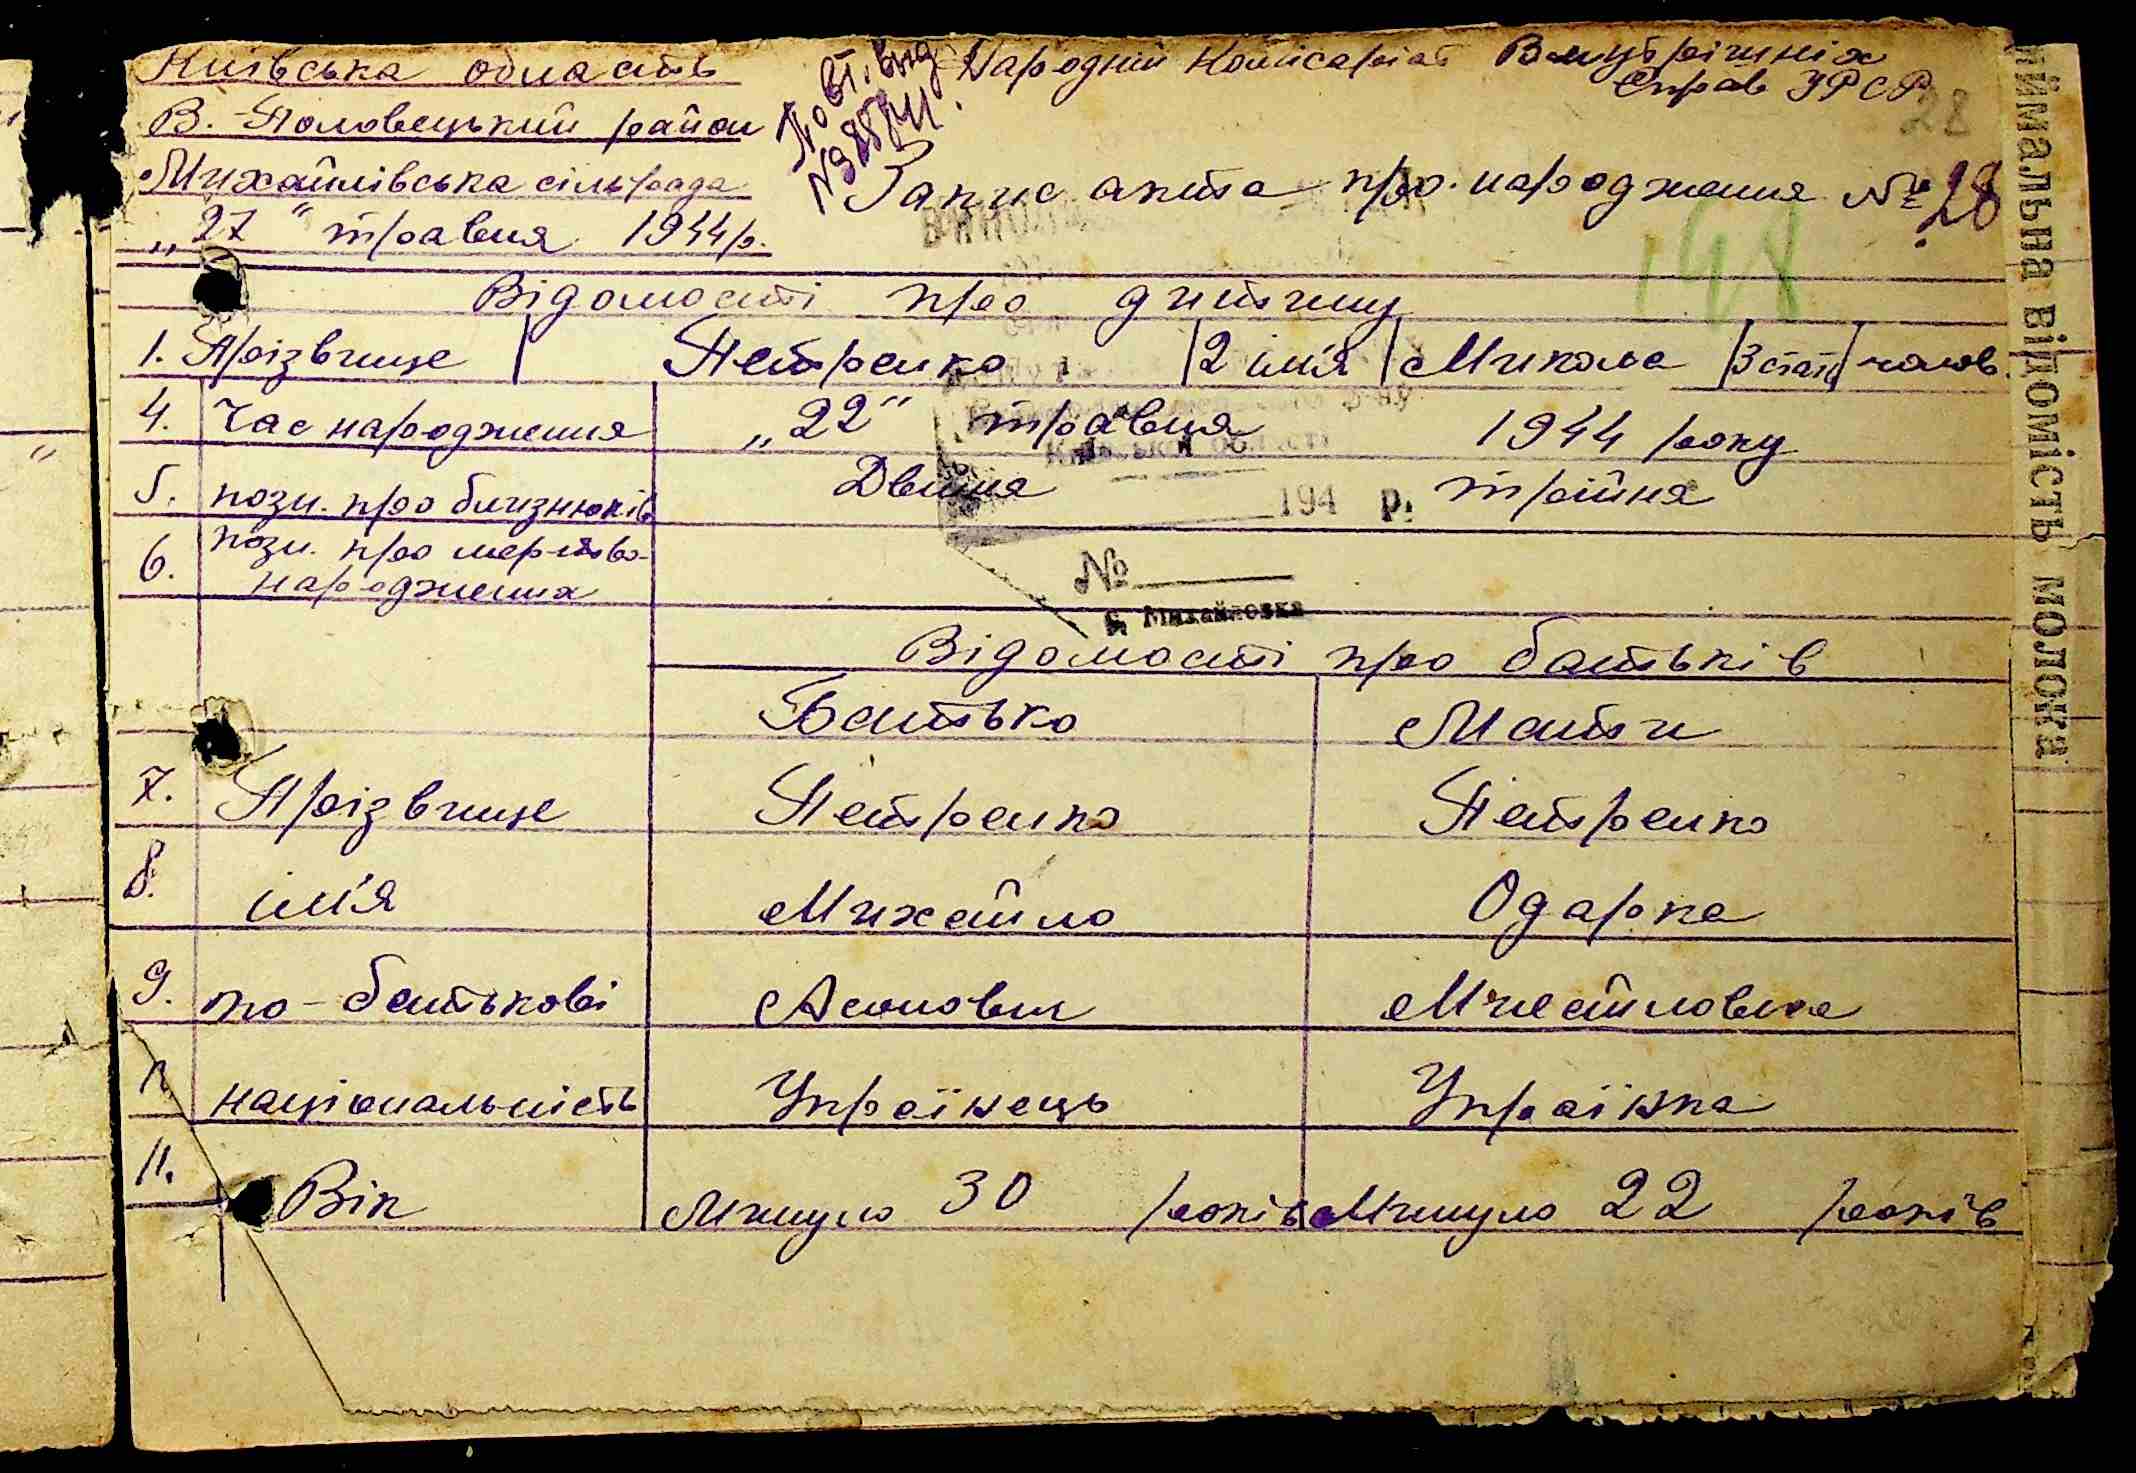 Київська область
Народній Комісаріат Внутрішніх
Справ УРСР
В. Половецький район
По вт. вид.
28
Михайлівська сільрада
Запис акта про народження № 28
„27“ травня 1944 р.
198
Відомості про дитину
1. Прізвище Петренко 2 ім'я Микола 3 стать чолов.
4. Час народження „22“ травня 1944 року
Київської області
5. позн. про близнюків Двійня трійня
194 р.
6. позн. про мертво-
народження
№
с. Михайловка
Відомості про батьків
Батько Мати
7. Прізвище Петренко Петренко
8. ім'я Михайло Одарка
9. по-батькові Михайловна
національність Українець Українка
11. Вік Минуло 30 років Минуло 22 років
ймальна відомість молока